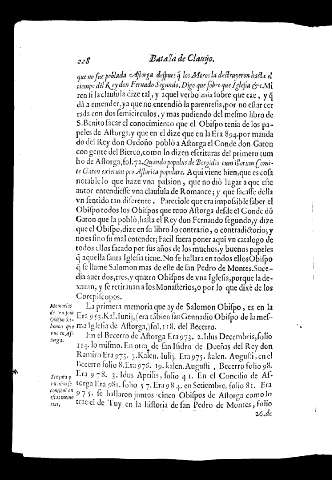 228 Batalla de Clauijo.
que no fue poblada Astorga despues q̃ los Moros la destruyeron hasta el
tiempo del Rey don Fernado Segundo. Digo que sobre que Iglesia &c. Mi
ren si la clausula dize tal, y aquel verbo mira sobre que cae, y q̃
dà a entender, ya que no entendiò la parentesis, por no estar cer
rada con dos semicirculos, y mas pudiendo del mismo libro de
S. Benito sacar el conocimiento que el Obispo tenia de los pa-
peles de Astorga, y que en el dize que en la Era 894. por manda
do del Rey don Ordoño poblò a Astorga el Conde don Gaton
con gente del Bierço, como lo dizen escrituras del primero tum
bo de Astorga, fol. 72. Quando populus de Bergido cum illorum Comi-
te Gaton exierunt pro Astorica populare. Aqui viene bien, que es cosa
notable lo que haze vna passion, que no diò lugar a que este
autor entendiesse vna clausula de Romance; y que sacasse della
vn sentido tan diferente. Pareciole que era impossible saber el
Obispo todos los Obispos que tuuo Astorga desde el Conde dõ
Gaton que la poblò, hasta el Rey don Fernando segundo, y dize
que el Obispo, dize en su libro lo contrario, o contradictorio, y
no es sino su mal entender; Facil fuera poner aqui vn catalogo de
todos ellos sacado por sus años de los muchos, y buenos papeles
q̃ aquella santa Iglesia tiene. No se hallara en todos ellos Obispo
q̃ se llame Salomon mas de este de san Pedro de Montes. Suce-
dia auer dos, tres, y quatro Obispos de vna Iglesia, porque la de-
xaran, y se retirauan a los Monasterios, o por lo que dixe de los
Corepiscopos.
Memorias
La primera memoria que ay de Salomon Obispo, es en la
Era 953. Kal. Iunij, sera tãbien san Gennadio Obispo de la mes-
ma Iglesia de Astorga, fol. 118. del Becerro.
En el Becerro de Astorga Era 973. 2. Idus Decembris, folio
113. lo mismo. En otra de san Isidro de Dueñas del Rey don
Ramiro Era 973. 3. Kalen. Iulij. Era 975. kalen. Augusti. en el
Becerro folio 8. Era 976. 19. kalen. Augusti, Becerro folio 98.
Era 978. 3. Idus Aprilis, folio 41. En el Concilio de As-
torga Era 981. folio 57. Era 984. en Setiembre, folio 81. Era
975. se hallaron juntos cinco Obispos de Astorga como lo
trae el de Tuy en la historia de san Pedro de Montes, folio
26. de